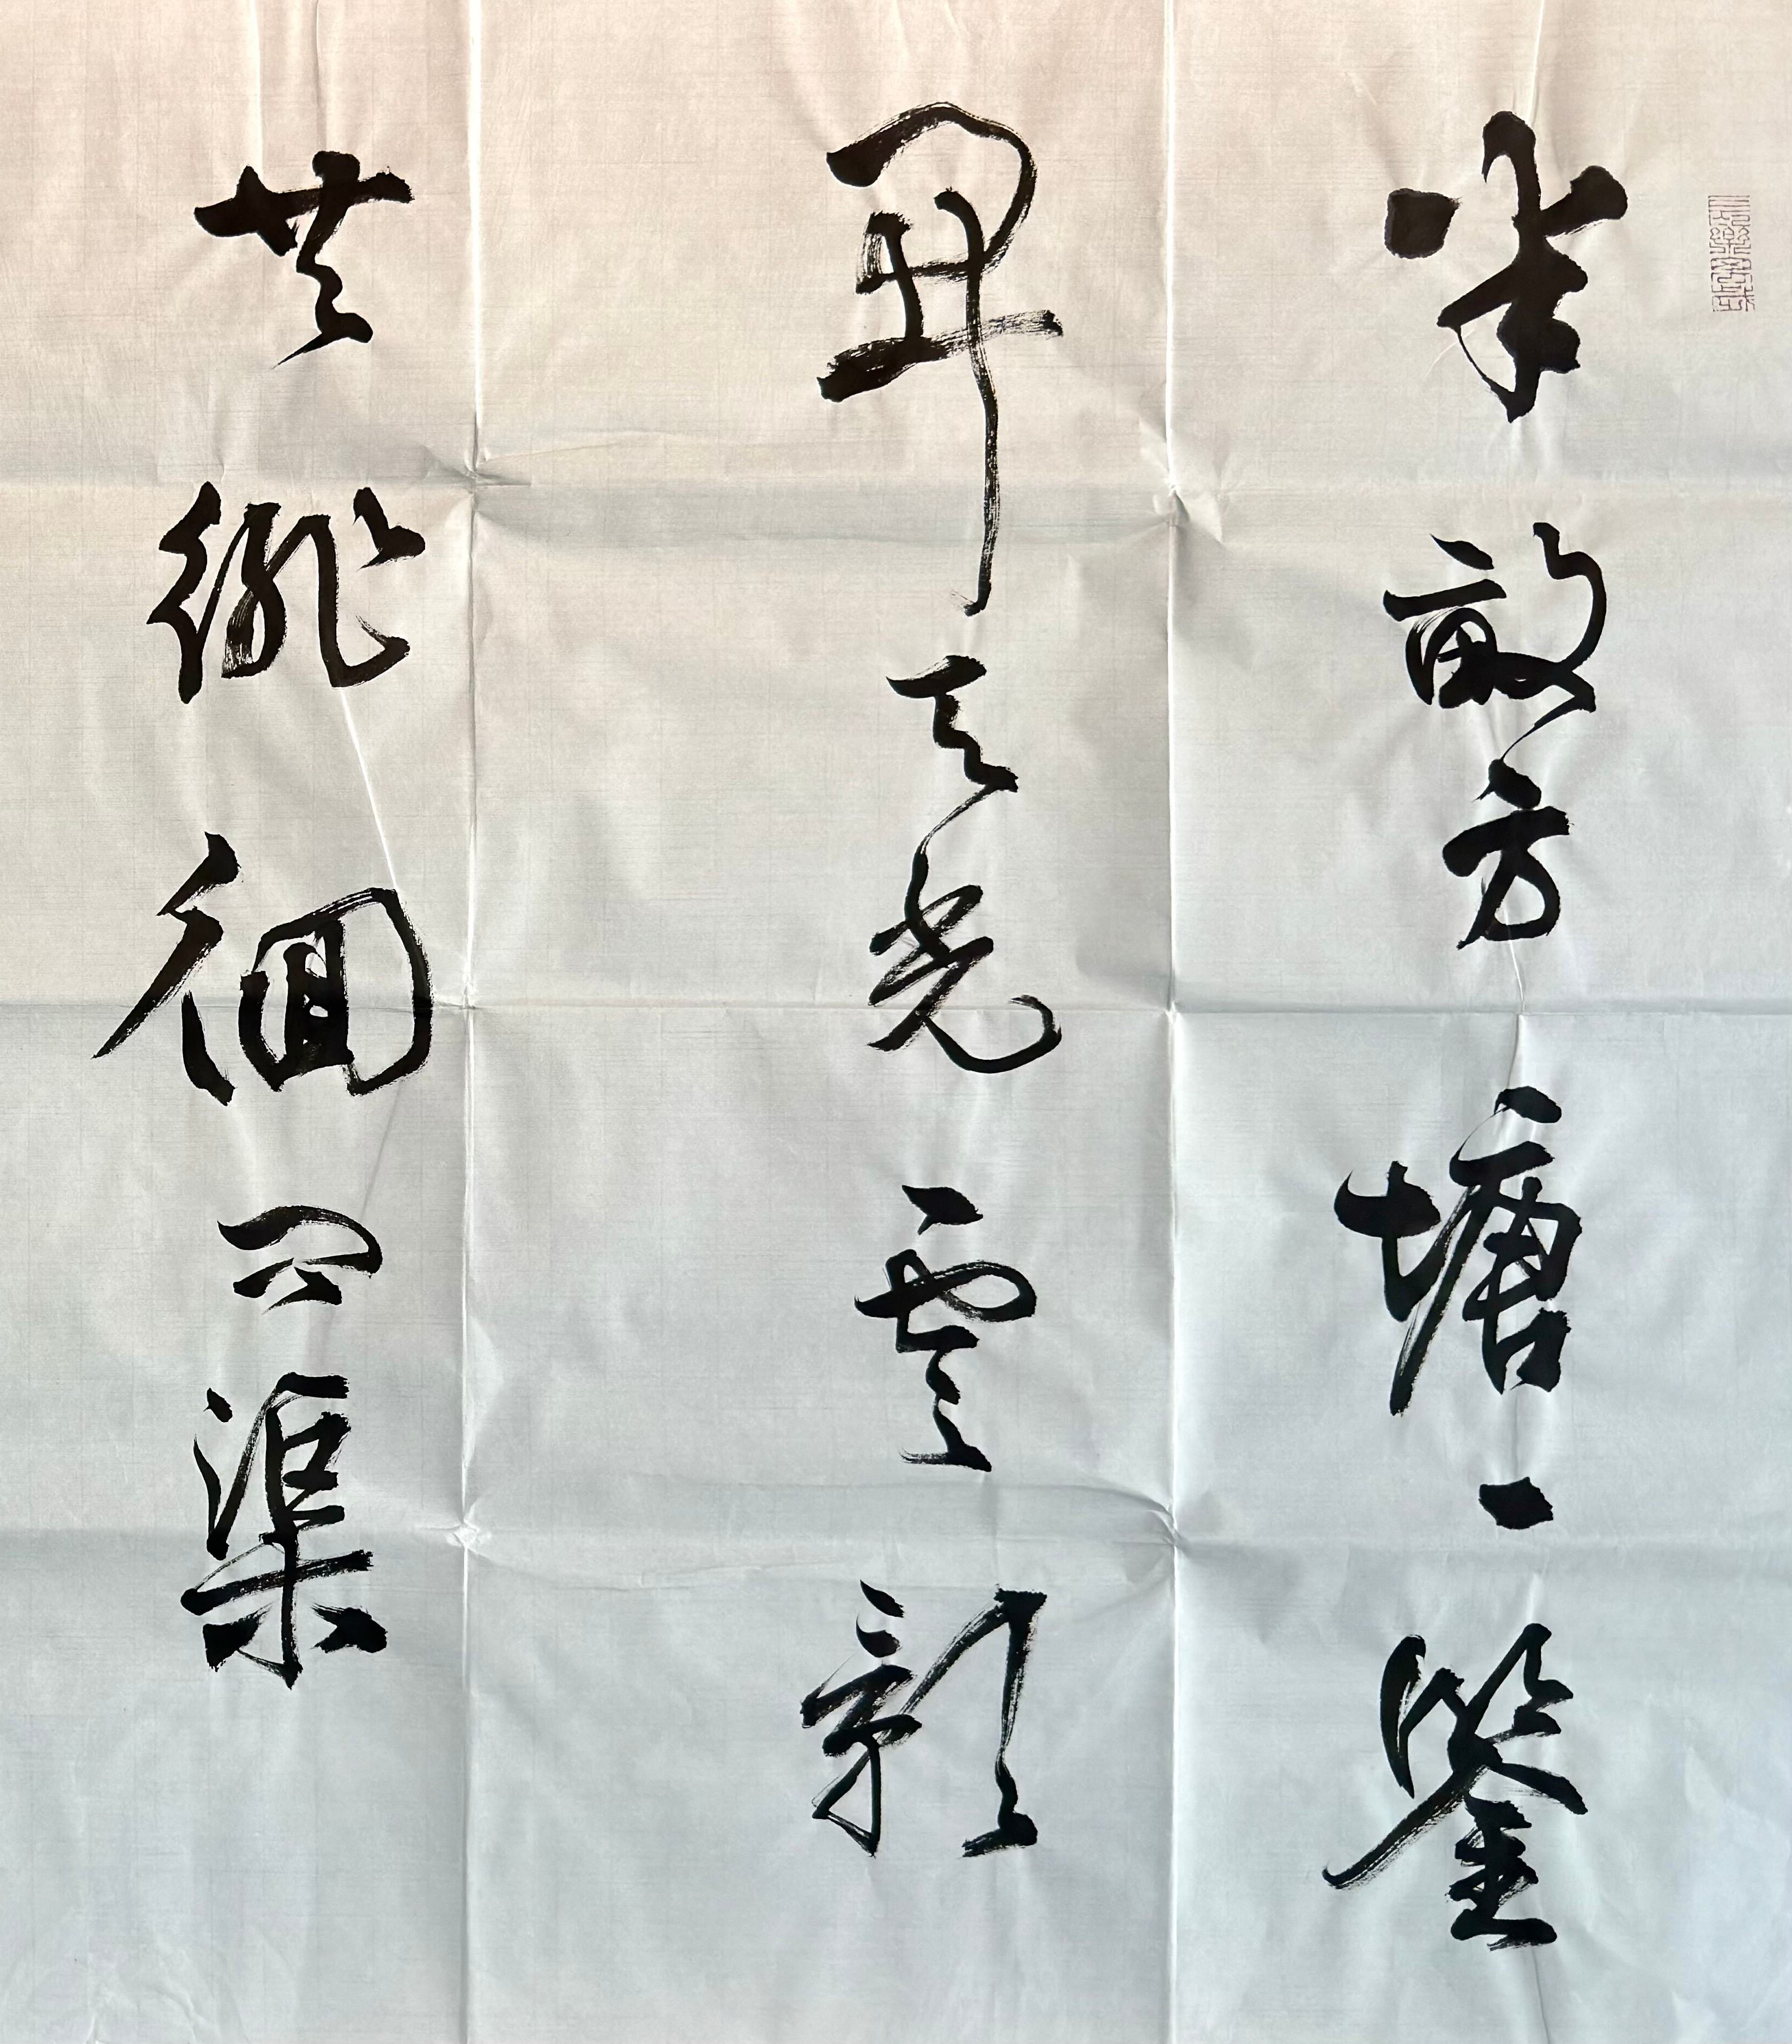 半畝方塘一鑒
開天光雲影
共徘徊問渠